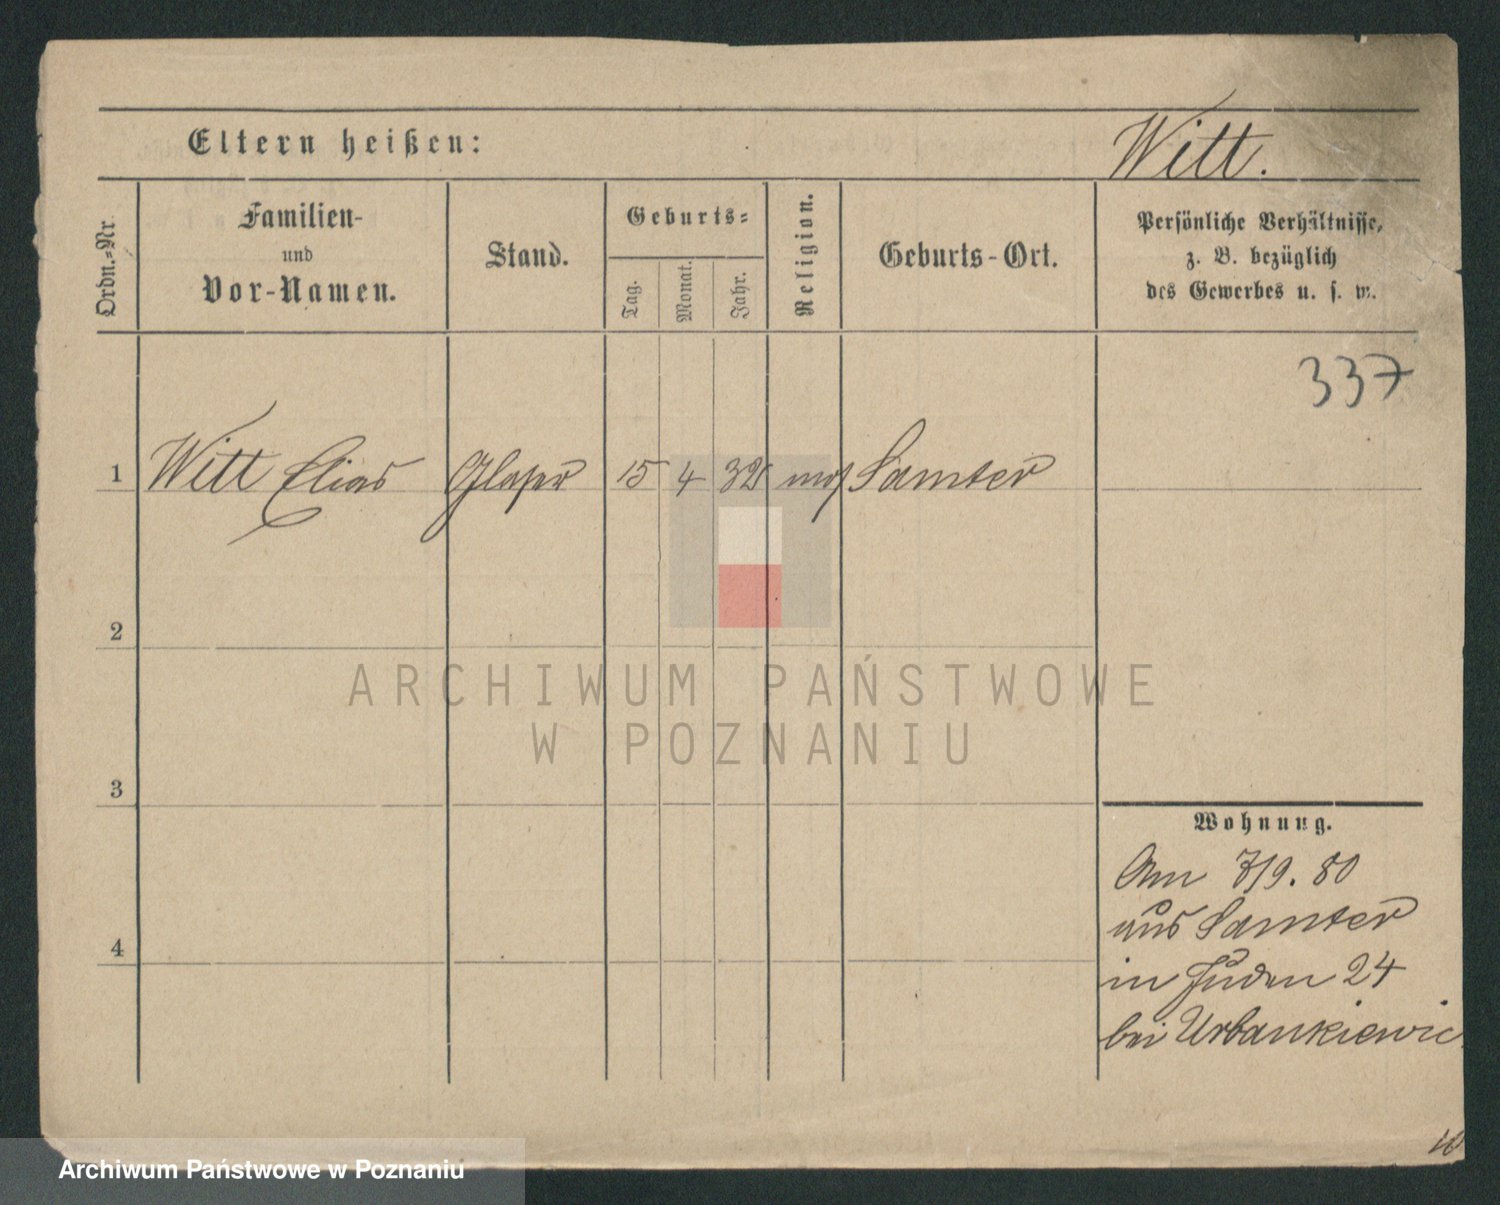 Eltern heißen:
Witt.
Ordn.-Nr.
Familien-
und
Vor-Namen.
Stand.
Geburts-
Tag.
Monat.
Jahr.
Religion.
Geburts-Ort.
Persönliche Verhältnisse,
z. B. bezüglich
des Gewerbes u. s. w.
337
1 Witt Elias Glaser 15 4 32 mos Samter
2
3
4
Wohnung.
Am 7/9. 80
aus Samter
in Juden 24
bei Urbankiewic
ARCHIWUM PAŃSTWOWE
W POZNANIU
Archiwum Państwowe w Poznaniu